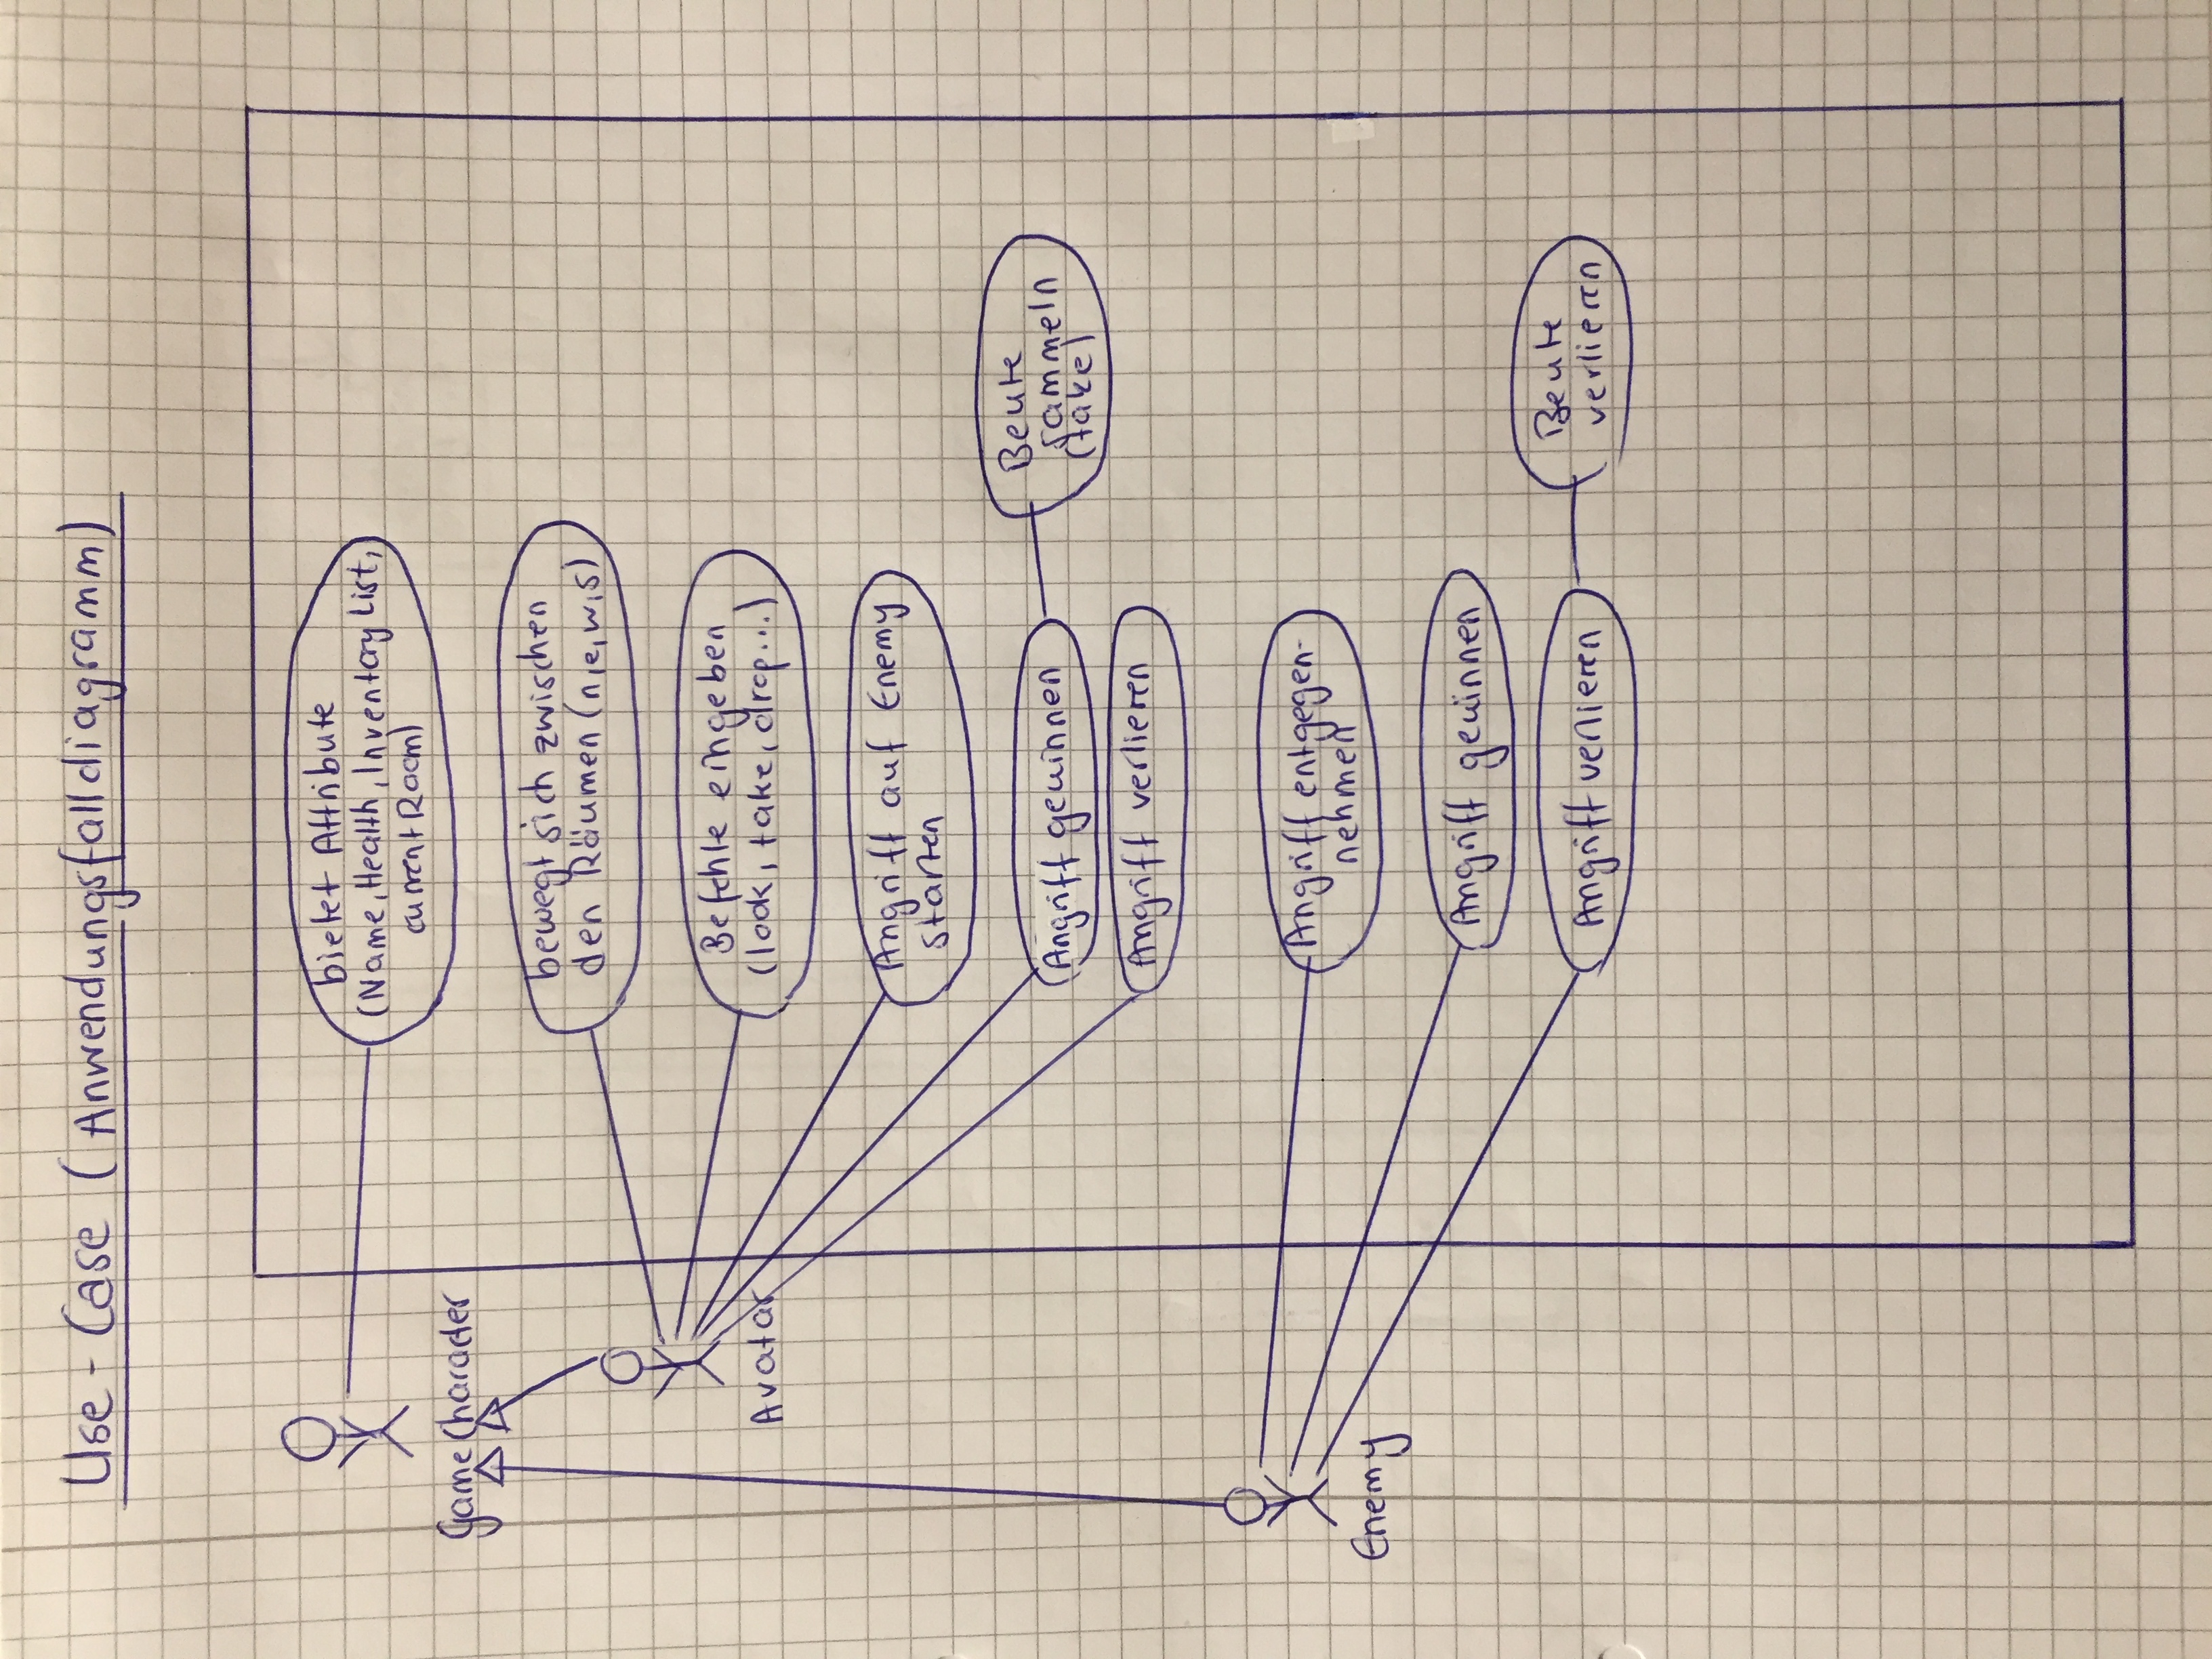 Use-Case (Anwendungsfalldiagramm)
bietet Attribute
(Name, Health, Inventory List,
current Room)
GameCharacter
bewegt sich zwischen
den Räumen (n,e,w,s)
Befehle eingeben
(look, take, drop...)
Avatar
Angriff auf Enemy
starten
Angriff gewinnen
Beute
sammeln
(take)
Angriff verlieren
Angriff entgegen-
nehmen
Enemy
Angriff gewinnen
Angriff verlieren
Beute
verlieren